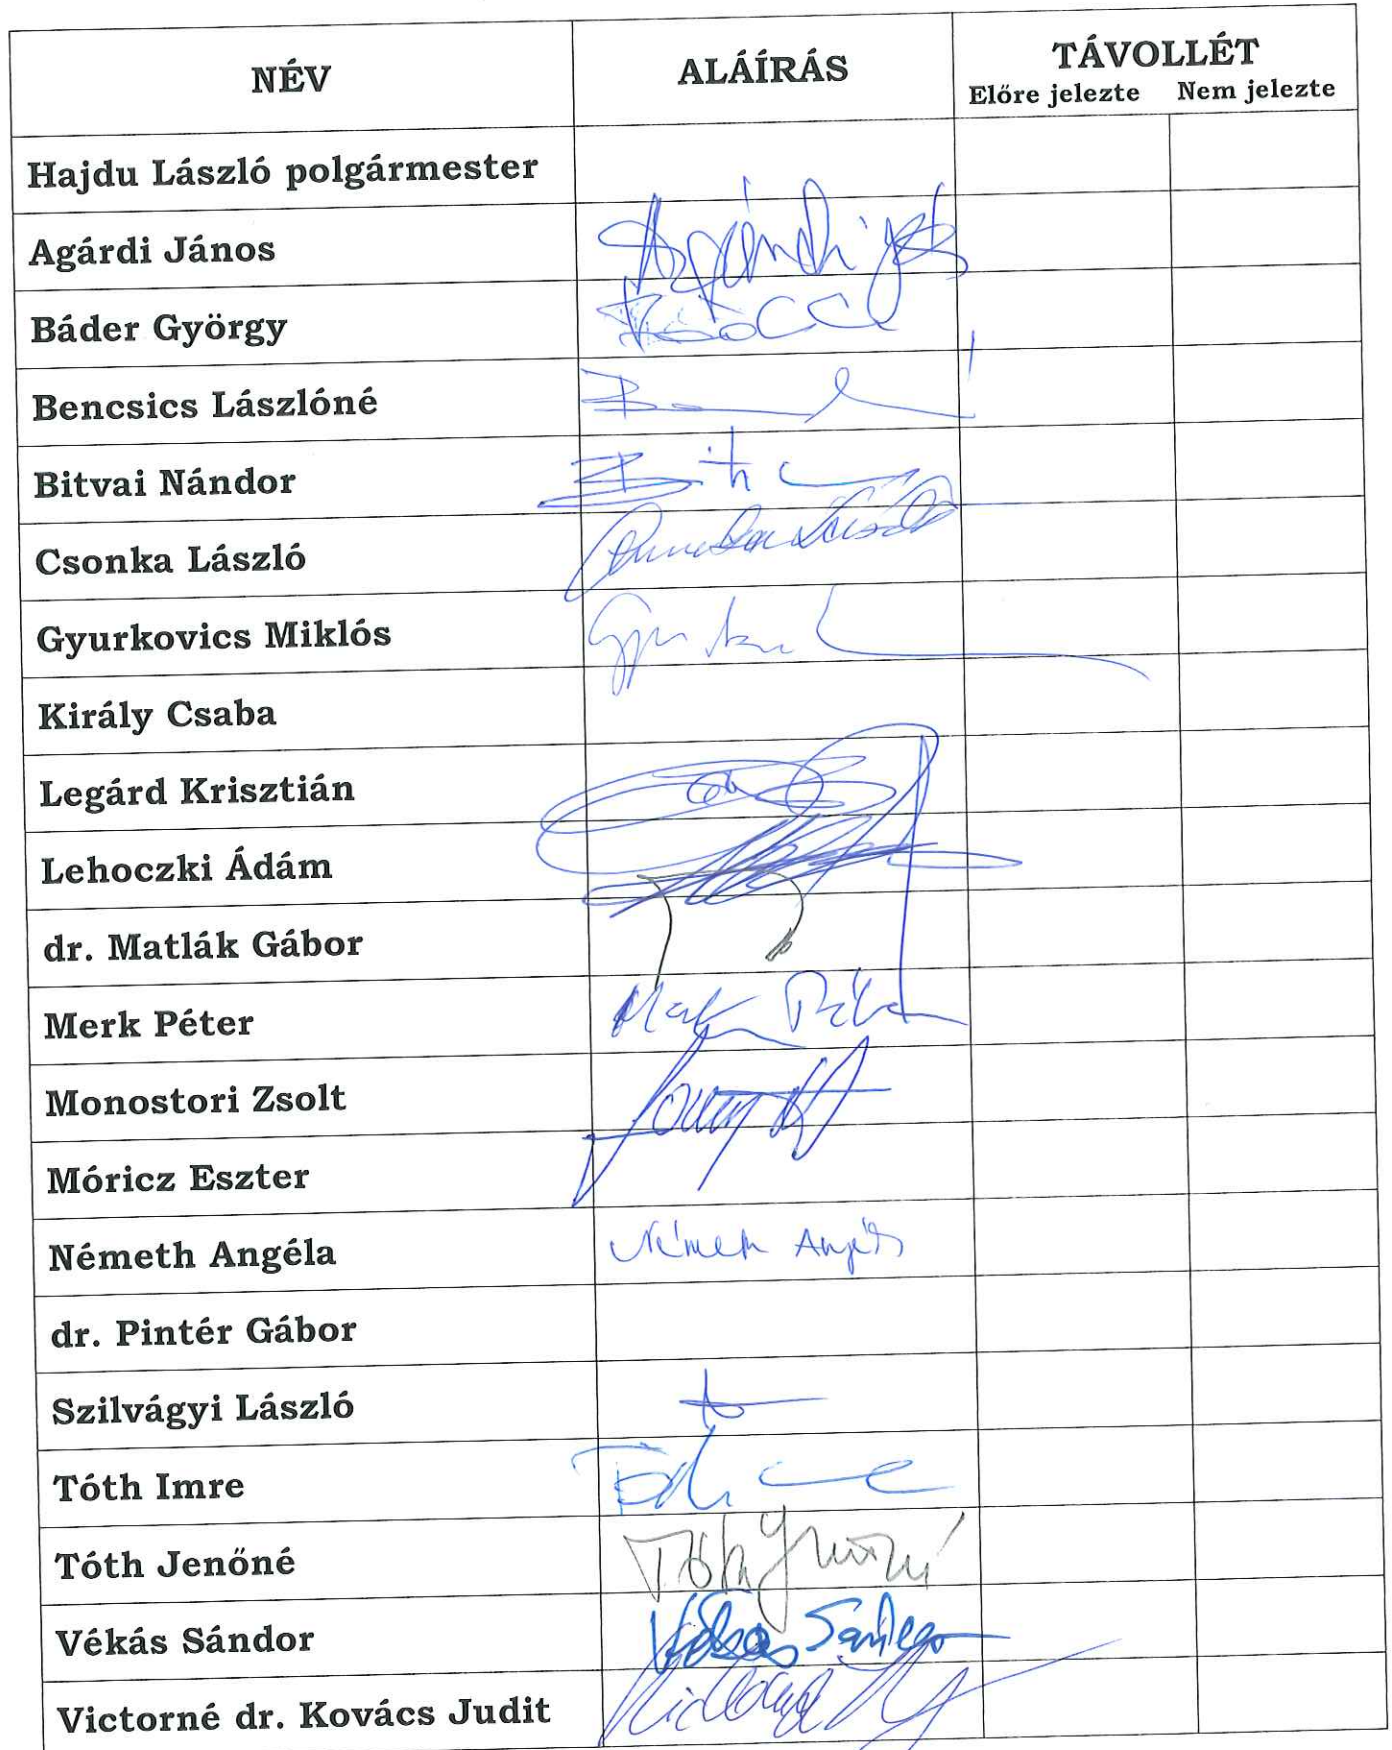 NÉV ALÁÍRÁS TÁVOLLÉT
Előre jelezte Nem jelezte
Hajdu László polgármester
Agárdi János
Báder György
Bencsics Lászlóné
Bitvai Nándor
Csonka László
Gyurkovics Miklós
Király Csaba
Legárd Krisztián
Lehoczki Ádám
dr. Matlák Gábor
Merk Péter Merk Péter
Monostori Zsolt
Móricz Eszter
Németh Angéla Németh Angéla
dr. Pintér Gábor
Szilvágyi László
Tóth Imre
Tóth Jenőné Tóth Jenőné
Vékás Sándor Vékás Sándor
Victorné dr. Kovács Judit